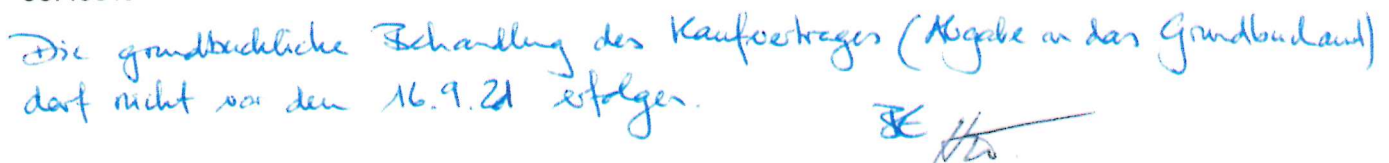 Die grundbuchliche Behandlung des Kaufvertrages (Abgabe an das Grundbuchamt)
darf nicht vor dem 16.9.21 erfolgen.